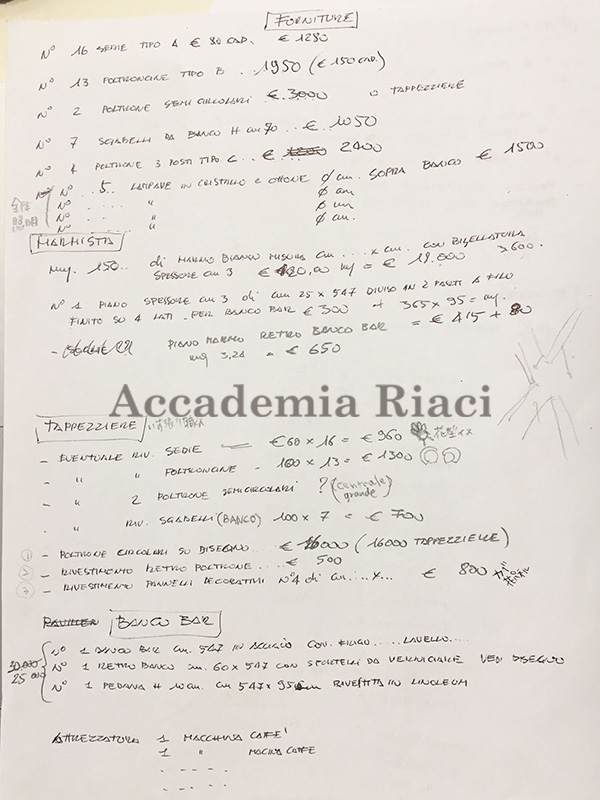 FORNITURE
N° 16 SEDIE TIPO A € 80 CAD. € 1280
N° 13 POLTRONCINE TIPO B .. 1950 (€ 150 CAD.)
N° 2 POLTRONE SEMICIRCOLARI € 3000 O TAPPEZZIERE
N° 7 SGABELLI DA BANCO H cm 70 .. €. 1050
N° 4 POLTRONE 3 POSTI TIPO C .. € 2400
N° .. 5.. LAMPADE IN CRISTALLO E OTTONE Ø cm. SOPRA BANCO € 1500
N° ..... " Ø cm
N° ..... " Ø cm
N° ..... " Ø cm.
照明
MARMISTA
mq. 150.. di MARMO BIANCO MISURA cm ....x cm. CON BISELLATURA
SPESSORE cm 3 € 120,00 mq = € 18.000 > 600.
N° 1 PIANO SPESSORE cm 3 di cm 25 x 547 DIVISO IN 2 PARTI A FILO
FINITO SU 4 LATI - PER BANCO BAR € 300 + 365 x 95 = mq.
PIANO MARMO RETRO BANCO BAR = € 415 + 80
mq 3,24 = € 650
Accademia Riaci
TAPPEZZIERE いす張り職人
- EVENTUALE RIV. SEDIE — € 60 x 16 = € 960 花型イス
- " " POLTRONCINE - 100 x 13 = € 1300
- " 2 POLTRONE SEMICIRCOLARI ? (centrale grande)
- " RIV. SGABELLI (BANCO) 100 x 7 = € 700
① - POLTRONE CIRCOLARI SU DISEGNO .. € 16000 (16000 TAPPEZZIERE)
② - RIVESTIMENTO RETRO POLTRONE ... € 500
③ - RIVESTIMENTO PANNELLI DECORATIVI N°4 di cm...x... € 800
BANCO BAR
30.000
25 000
N° 1 BANCO BAR cm. 547 IN ACCIAIO CON FRIGO .....LAVELLO....
N° 1 RETRO BANCO cm. 60 x 547 CON SPORTELLI DA VERNICIARE VEDI DISEGNO
N° 1 PEDANA H 10 cm. cm 547 x 95 RIVESTITA IN LINOLEUM
ATTREZZATURA 1 MACCHINA CAFFE'
1 " MACINA CAFFE
- ... - .. -
- ... - .. -